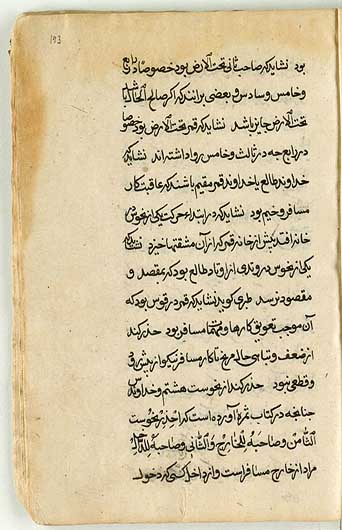 193
بود نشاید که صاحب ثانی تحت الارض بود خصوصا در رابع
و خامس و سادس و بعضی برانند که اگر صالح الحال باشد
تحت الارض جایز باشد نشاید که قمر تحت الارض بود خصوصا
در رابع چه در ثالث و خامس روا داشته‌اند نشاید که
خداوند طالع یا خداوند قمر مقیم باشند که عاقبت کار
مسافر وخیم بود نشاید که در ابتداء حرکت یکی از نحوس در
خانه افتد بیش از خانه قمر که از آن مشقتها خیزد نشاید که
یکی از نحوس در وتدی از اوتاد طالع بود که بمقصد و
مقصود نرسد طبری گوید نشاید که قمر در قوس بود که
آن موجب تعویق کارها و مهمات مسافر بود حذر کند
از ضعف و تباهی حال مریخ تا کار مسافر نیکو از بیشتر
و قطعی نبود حذر کند از نحوست هشتم و خداوندش
چنانچه در کتاب ثمره آورده است که احذر نحوسة
الثامن و صاحبه للخارج و الثانی و صاحبه للداخل
مراد از خارج مسافر است و از داخل کسی که دخول